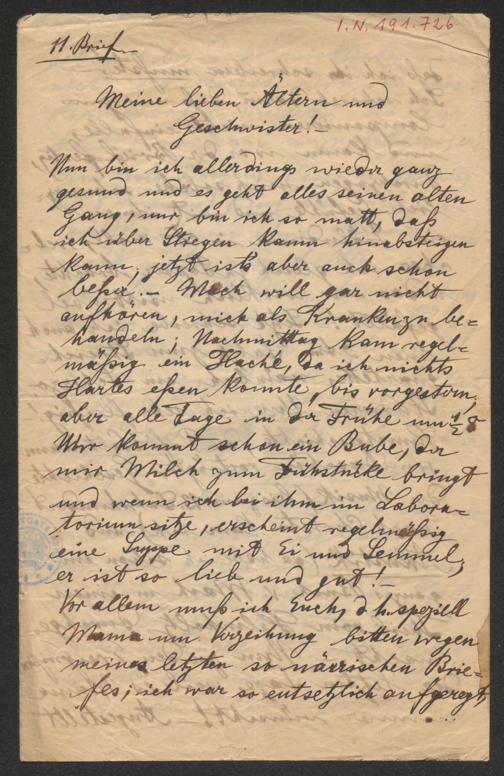 I.N. 191.726
11. Brief.
Meine lieben Ältern und
Geschwister! –
Nun bin ich allerdings wieder ganz
gesund und es geht alles seinen alten
Gang, nur bin ich so matt, daß
ich über Stiegen kaum hinabsteigen
kann, jetzt ist's aber auch schon
beßer. – Woch will gar nicht
aufhören, mich als Kranken zu be=
handeln; Nachmittag kam regel=
mäßig ein Haché, da ich nichts
Hartes eßen konnte, bis vorgestern,
aber alle Tage in der Frühe um ½ 8
Uhr kommt schon ein Bube, der
mir Milch zum Frühstücke bringt
und wenn ich bei ihm im Labora=
torium sitze, erscheint regelmäßig
eine Suppe mit Ei und Semmel,
er ist so lieb und gut! –
Vor allem muß ich Euch, d.h. speziell
Mama um Verzeihung bitten wegen
meines letzten so närrischen Brie=
fes; ich war so entsetzlich aufgeregt,